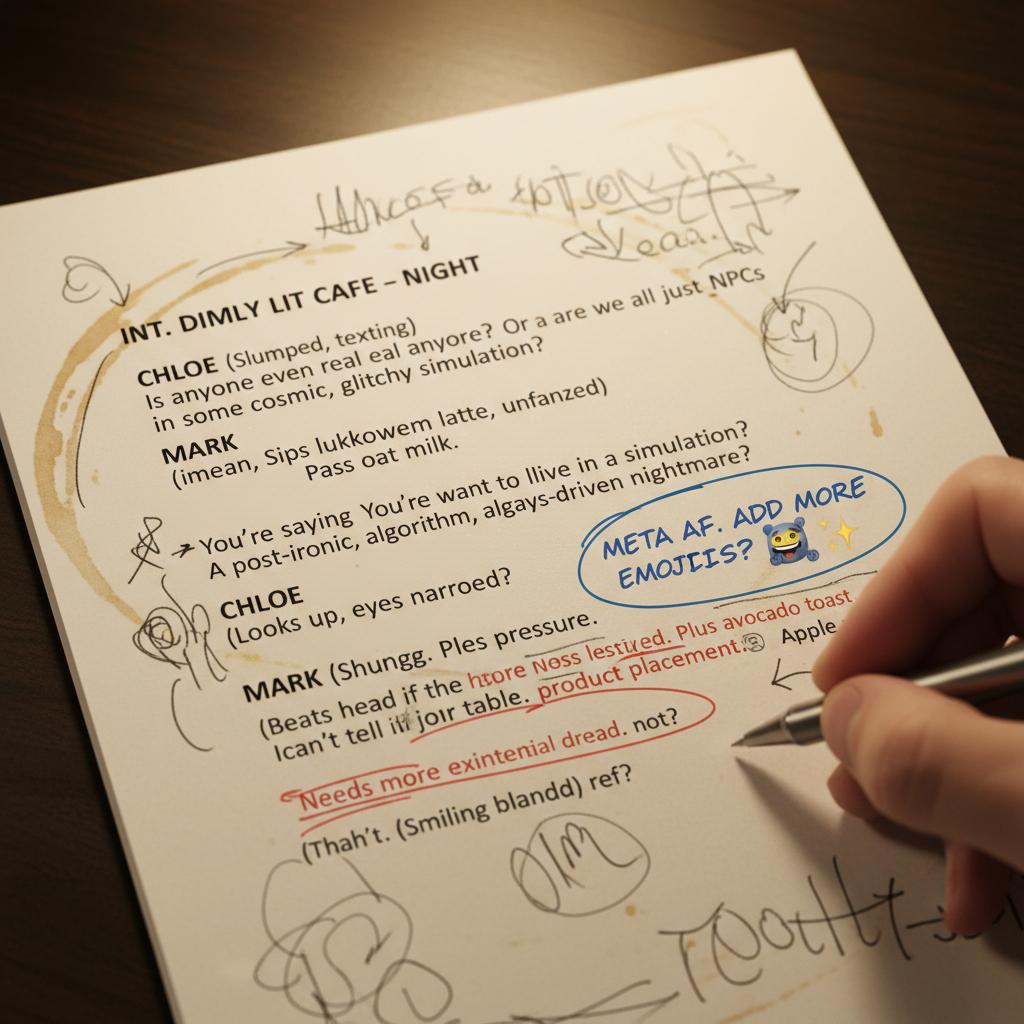 INT. DIMLY LIT CAFE – NIGHT
CHLOE (Slumped, texting)
Is anyone even real eal anyore? Or a are we all just NPCs
in some cosmic, glitchy simulation?
MARK
(imean, Sips lukkowem latte, unfanzed)
Pass oat milk.
You're saying You're want to llive in a simulation?
A post-ironic, algorithm, algays-driven nightmare?
META AF. ADD MORE
EMOJIIS? 
CHLOE
(Looks up, eyes narroed?
MARK (Shungg. Ples pressure.
(Beats head if the hrore Noss lestived. Plus avocado toast
Ican't tell joir table. product placement. Apple
Needs more exintenial dread. not?
(Thah't. (Smiling blandd) ref?